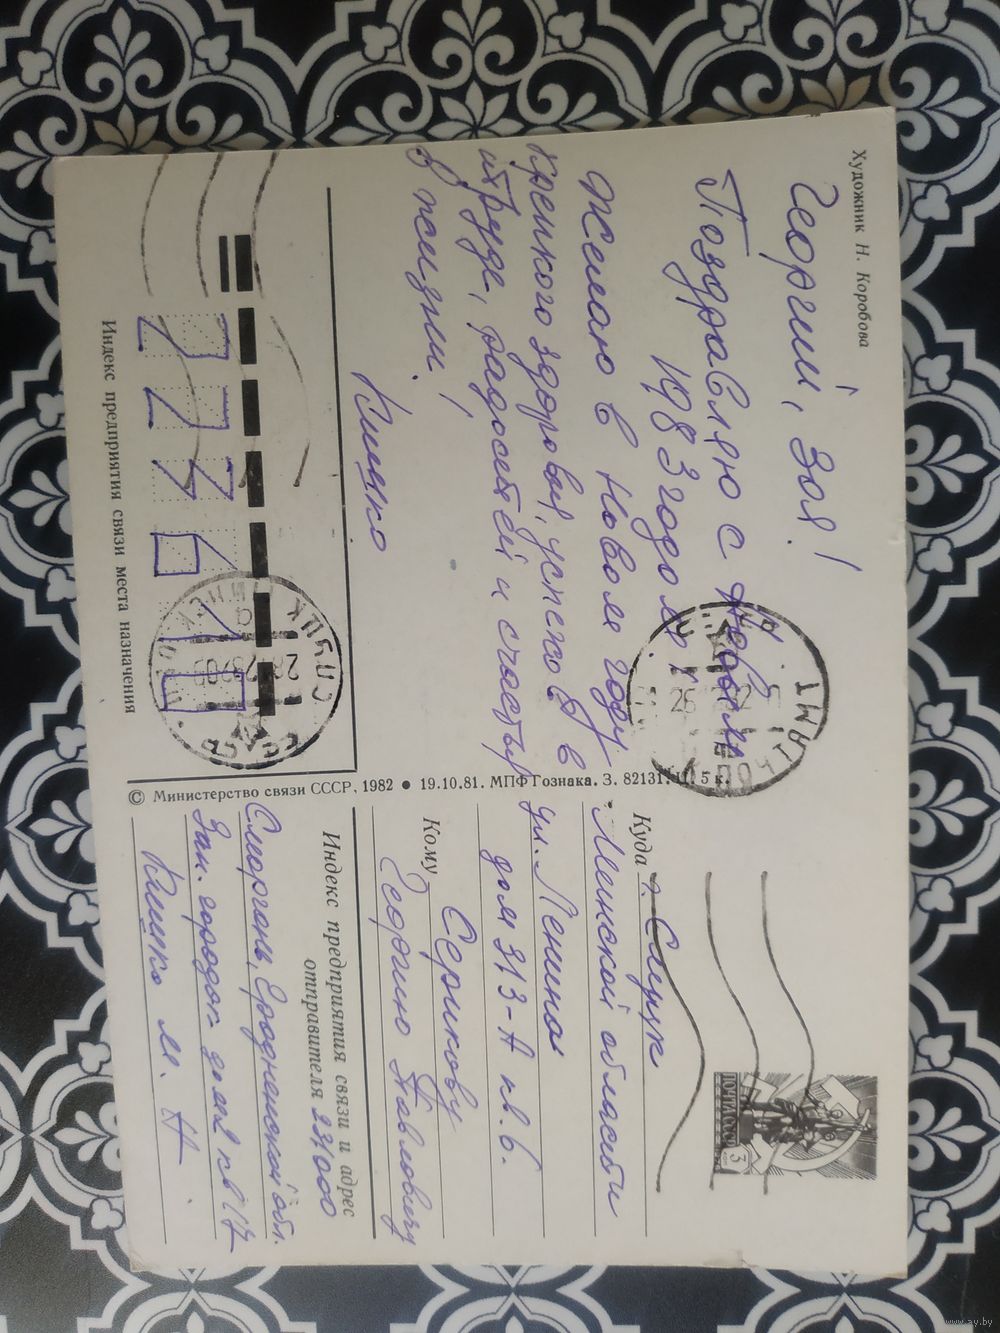 Художник Н. Коробова
Георгий, Зоя!
Поздравляю с Новым
1983 годом.
Желаю в Новом году
крепкого здоровья, успехов в
труде, радостей и счастья
в жизни.
Кишко
Индекс предприятия связи места назначения
СЛУЦК
ПОЧТАМТ
© Министерство связи СССР, 1982 ● 19.10.81. МПФ Гознака. З. 82131. Ц. 5 к.
ПОЧТА СССР
3
Куда г. Слуцк
Минской области
ул. Ленина
дом 313-А кв. 6.
Кому Серикову
Георгию Павловичу
Индекс предприятия связи и адрес
отправителя 231000
Сморгонь, Гродненской обл.
Зап. городок дом 2 кв 17
Кишко М. Н.
www.ay.by